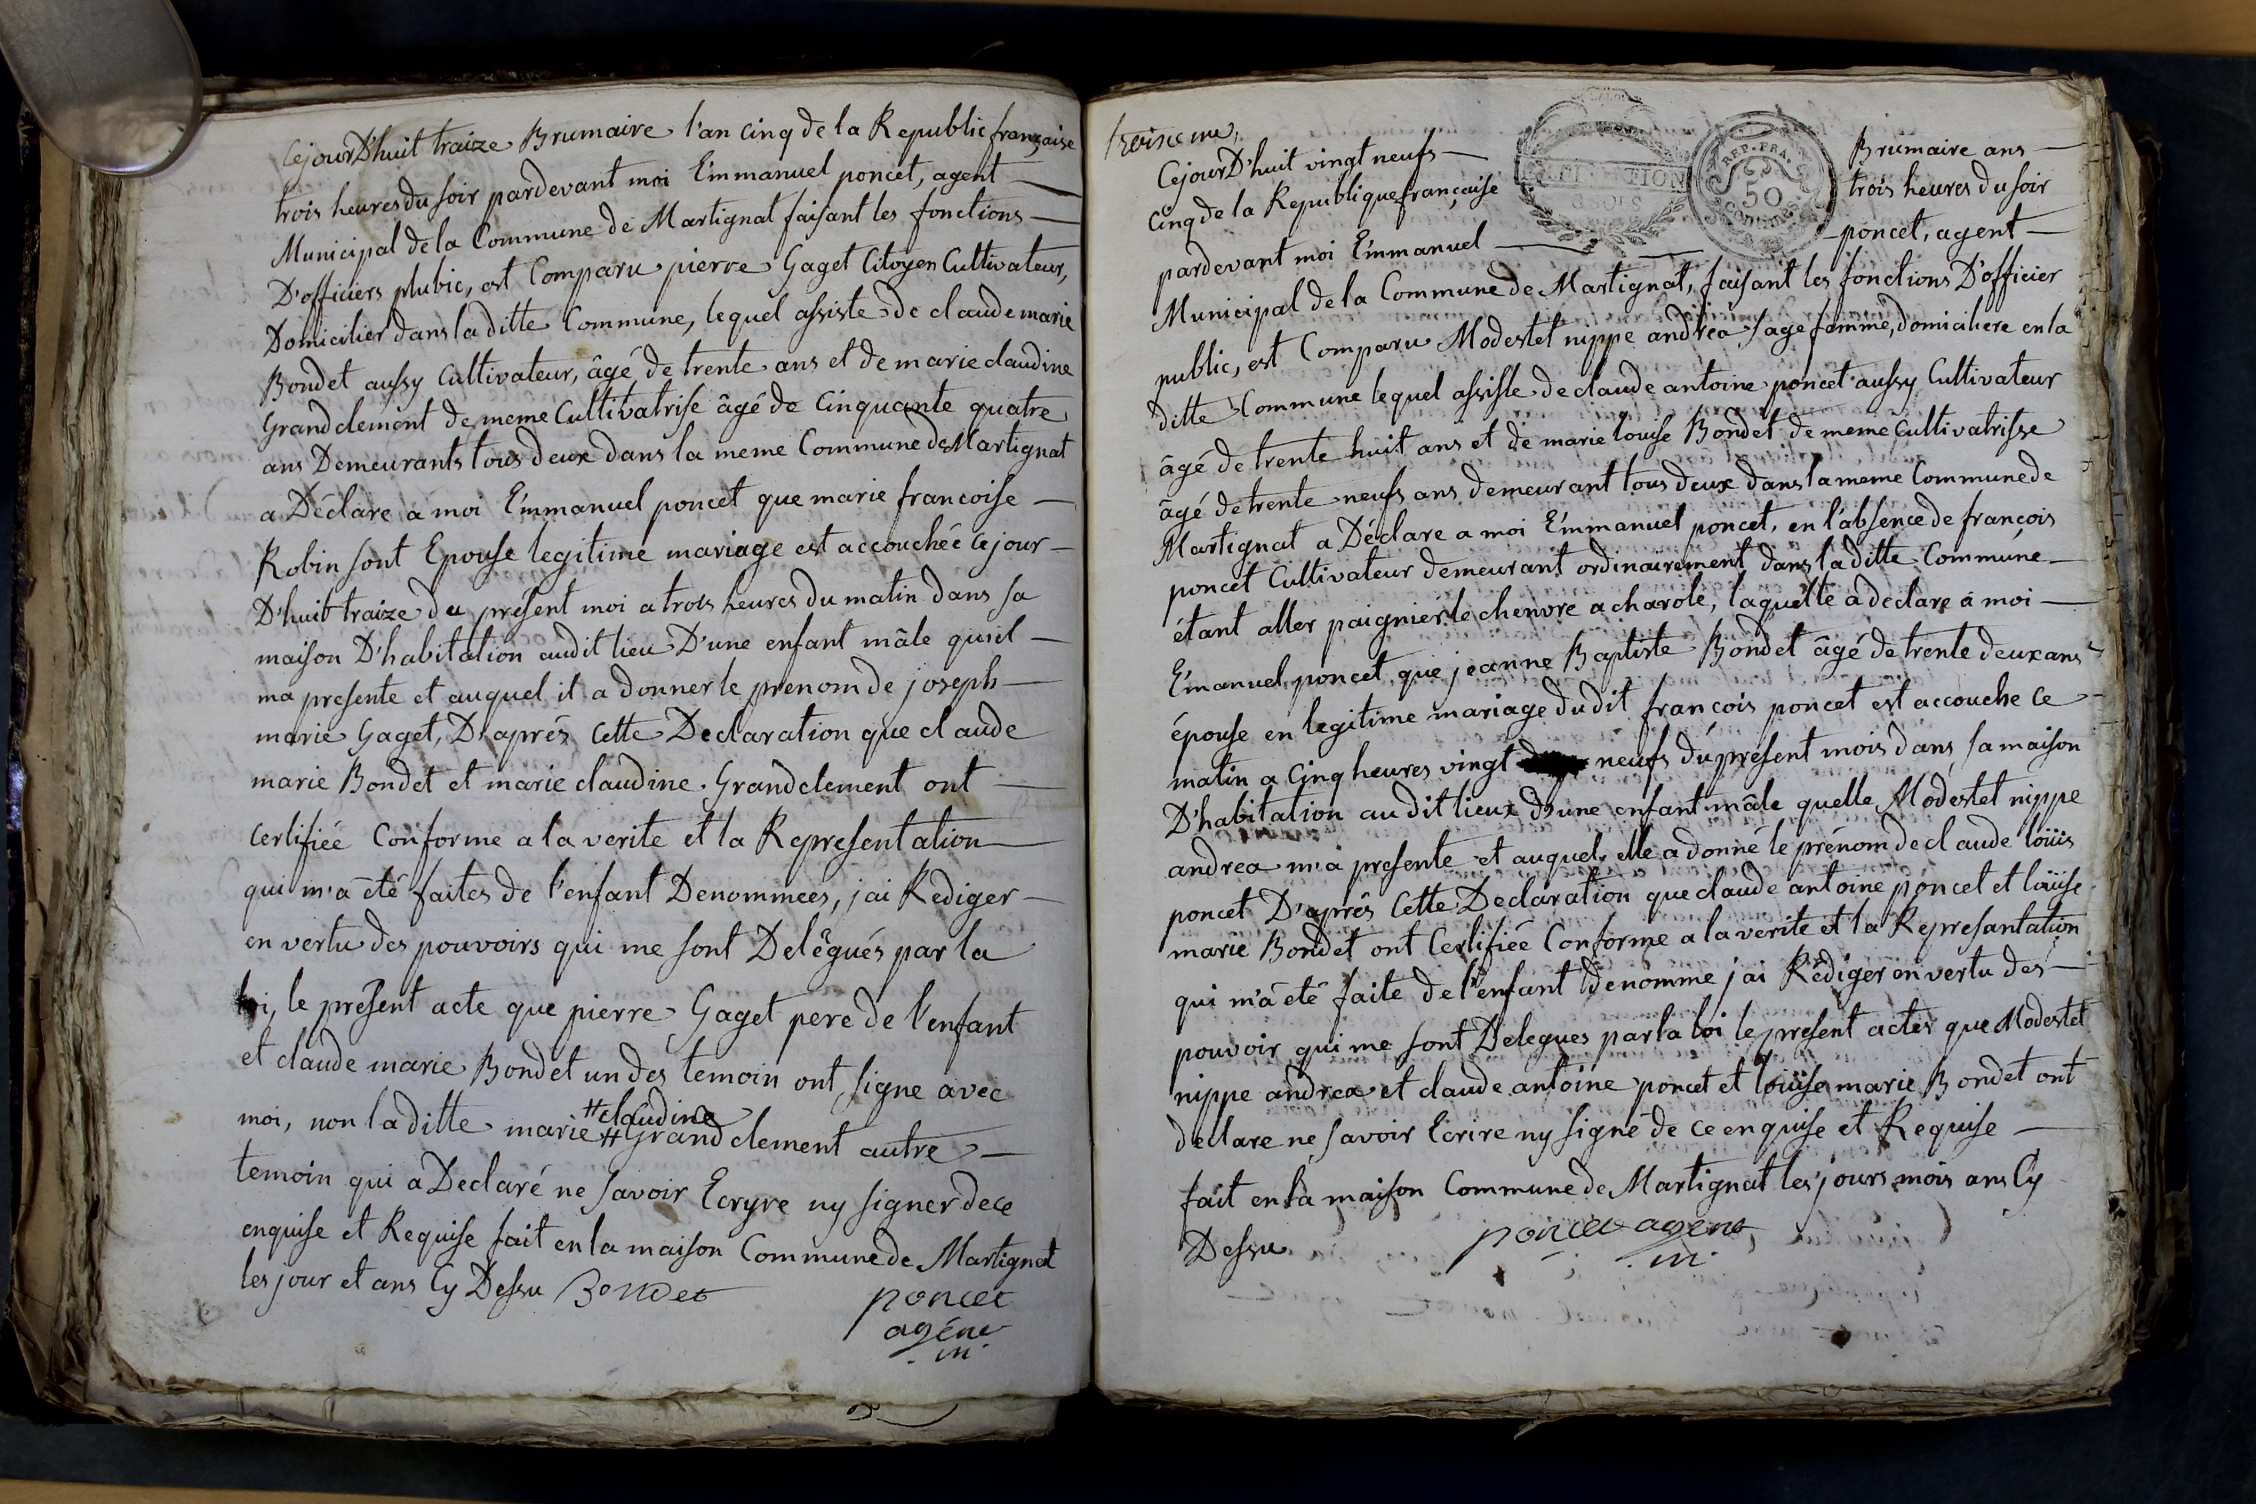 CejourD'huit traize Brumaire l'an cinq de la Republic française
trois heures du soir pardevant moi Emmanuel poncet, agent
Municipal de la Commune de Martignat faisant les fonctions
D'officiers plubic, est Comparu pierre Gaget Citoyen Cultivateur,
Domicilier dans la ditte Commune, lequel assiste de claude marie
Bondet aussy Cultivateur, âgé de trente ans et de marie claudine
Grandclement de meme Cultivatrise âgé de Cinquante quatre
ans Demeurants tous deux dans la meme Commune de Martignat
a Déclare a moi Emmanuel poncet que marie francoise
Robin sont Epouse legitime mariage est accouchée cejour
D'huit traize du présent moi a trois heures du matin dans sa
maison D'habitation audit lieu D'une enfant mâle qu'il
ma presente et auquel it a donner le prenom de joseph
marie Gaget, D'aprés Cette Declaration que claude
marie Bondet et marie claudine Grandclement ont
Certifiée Conforme a la verite et la Representation
qui m'a été faites de l'enfant Denommées, jai Rediger
en vertu des pouvoirs qui me sont Delégués par la
loi, le présent acte que pierre Gaget pere de l'enfant
et claude marie Bondet un des temoin ont signe avec
# claudine
moi, non la ditte marie # Grandclement autre
temoin qui a Declaré ne savoir Ecryre ny signer de ce
enquise et Requise fait en la maison Commune de Martignat
les jour et ans Cy Dessu Bondet
poncet
agént
m
troisieme,
CejourD'huit vingt neufs Brumaire ans
Cinq de la Republique française trois heures du soir
pardevant moi Emmanuel poncet, agent
REP. FRA.
50
Municipal de la Commune de Martignat, faisant les fonctions D'officier
public, est Comparu Modestet nippe andrea sage femme, domiciliere en la
ditte Commune lequel assiste de claude antoine poncet aussy Cultivateur
âgé de trente huit ans et de marie louise Bondet de meme Cultivatrisse
âgé de trente neufs ans demeurant tous deux dans la meme Commune de
Martignat a Déclare a moi Emmanuel poncet, en l'absence de francois
poncet Cultivateur demeurant ordinairement dans la ditte Commune
étant aller paignier le chenvre a charole, laquelle a declare a moi
Emanuel poncet, que jeanne Baptiste Bondet âgé de trente deux ans
épouse en legitime mariage dudit francois poncet est accouche ce
matin a Cinq heures vingt neufs du present mois dans sa maison
D'habitation au dit lieux d'une enfant mâle quelle Modestet nippe
andrea m'a presente et auquel elle a donné le prénom de claude loüis
poncet D'aprés Cette Declaration que claude antoine poncet et loüise
marie Bondet ont Certifiée Conforme a la verite et la Represantation
qui m'a été faite de l'enfant denomme jai Rédiger en vertu des
pouvoir qui me sont Delegues par la loi le present actes que Modestet
nippe andrea et claude antoine poncet et loüise marie Bondet ont
declare ne savoir Ecrire ny signé de ce enquise et Requise
fait en la maison Commune de Martignat les jours mois ans Cy
Dessu poncet agent
m